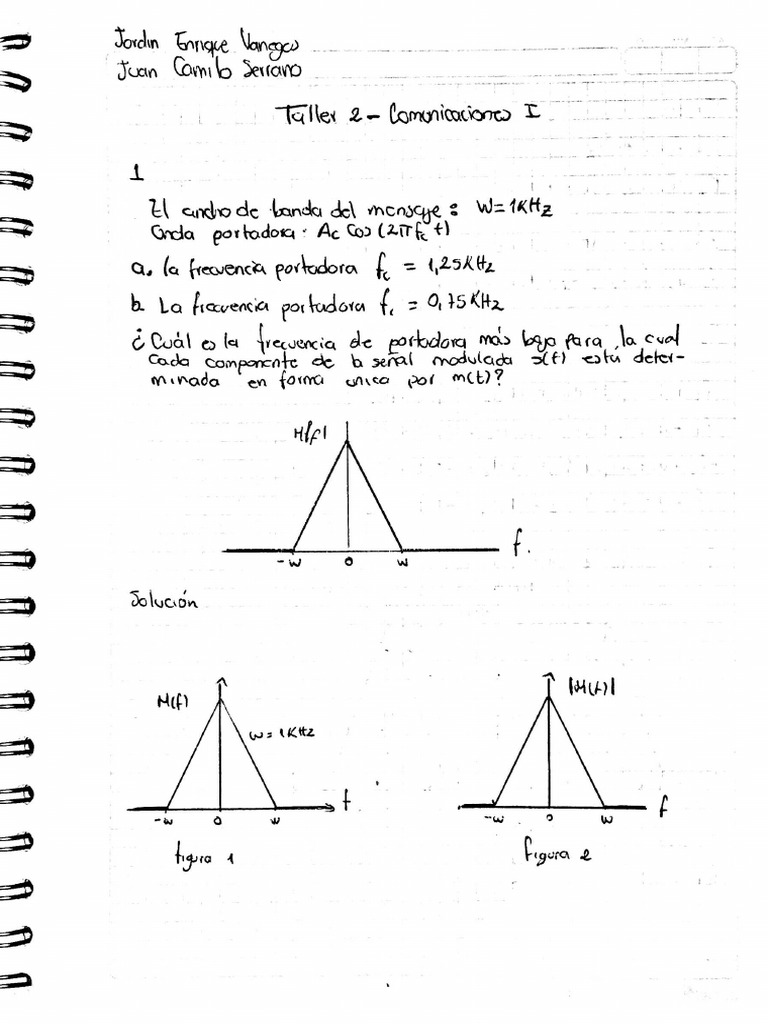 Jordin Enrique Vanegas
Juan Camilo Serrano
Taller 2 - Comunicaciones I
1
El ancho de banda del mensaje: W=1KHz
Onda portadora: Ac Cos(2πfc t)
a. la frecuencia portadora fc = 1,25KHz
b. La frecuencia portadora fc = 0,75KHz
¿Cuál es la frecuencia de portadora más baja para la cual
cada componente de la señal modulada s(t) está deter-
minada en forma unica por m(t)?
M(f)
-W 0 W f.
Solución
M(f)
W=1KHz
-W 0 W f
figura 1
|M(f)|
-W 0 W f
figura 2